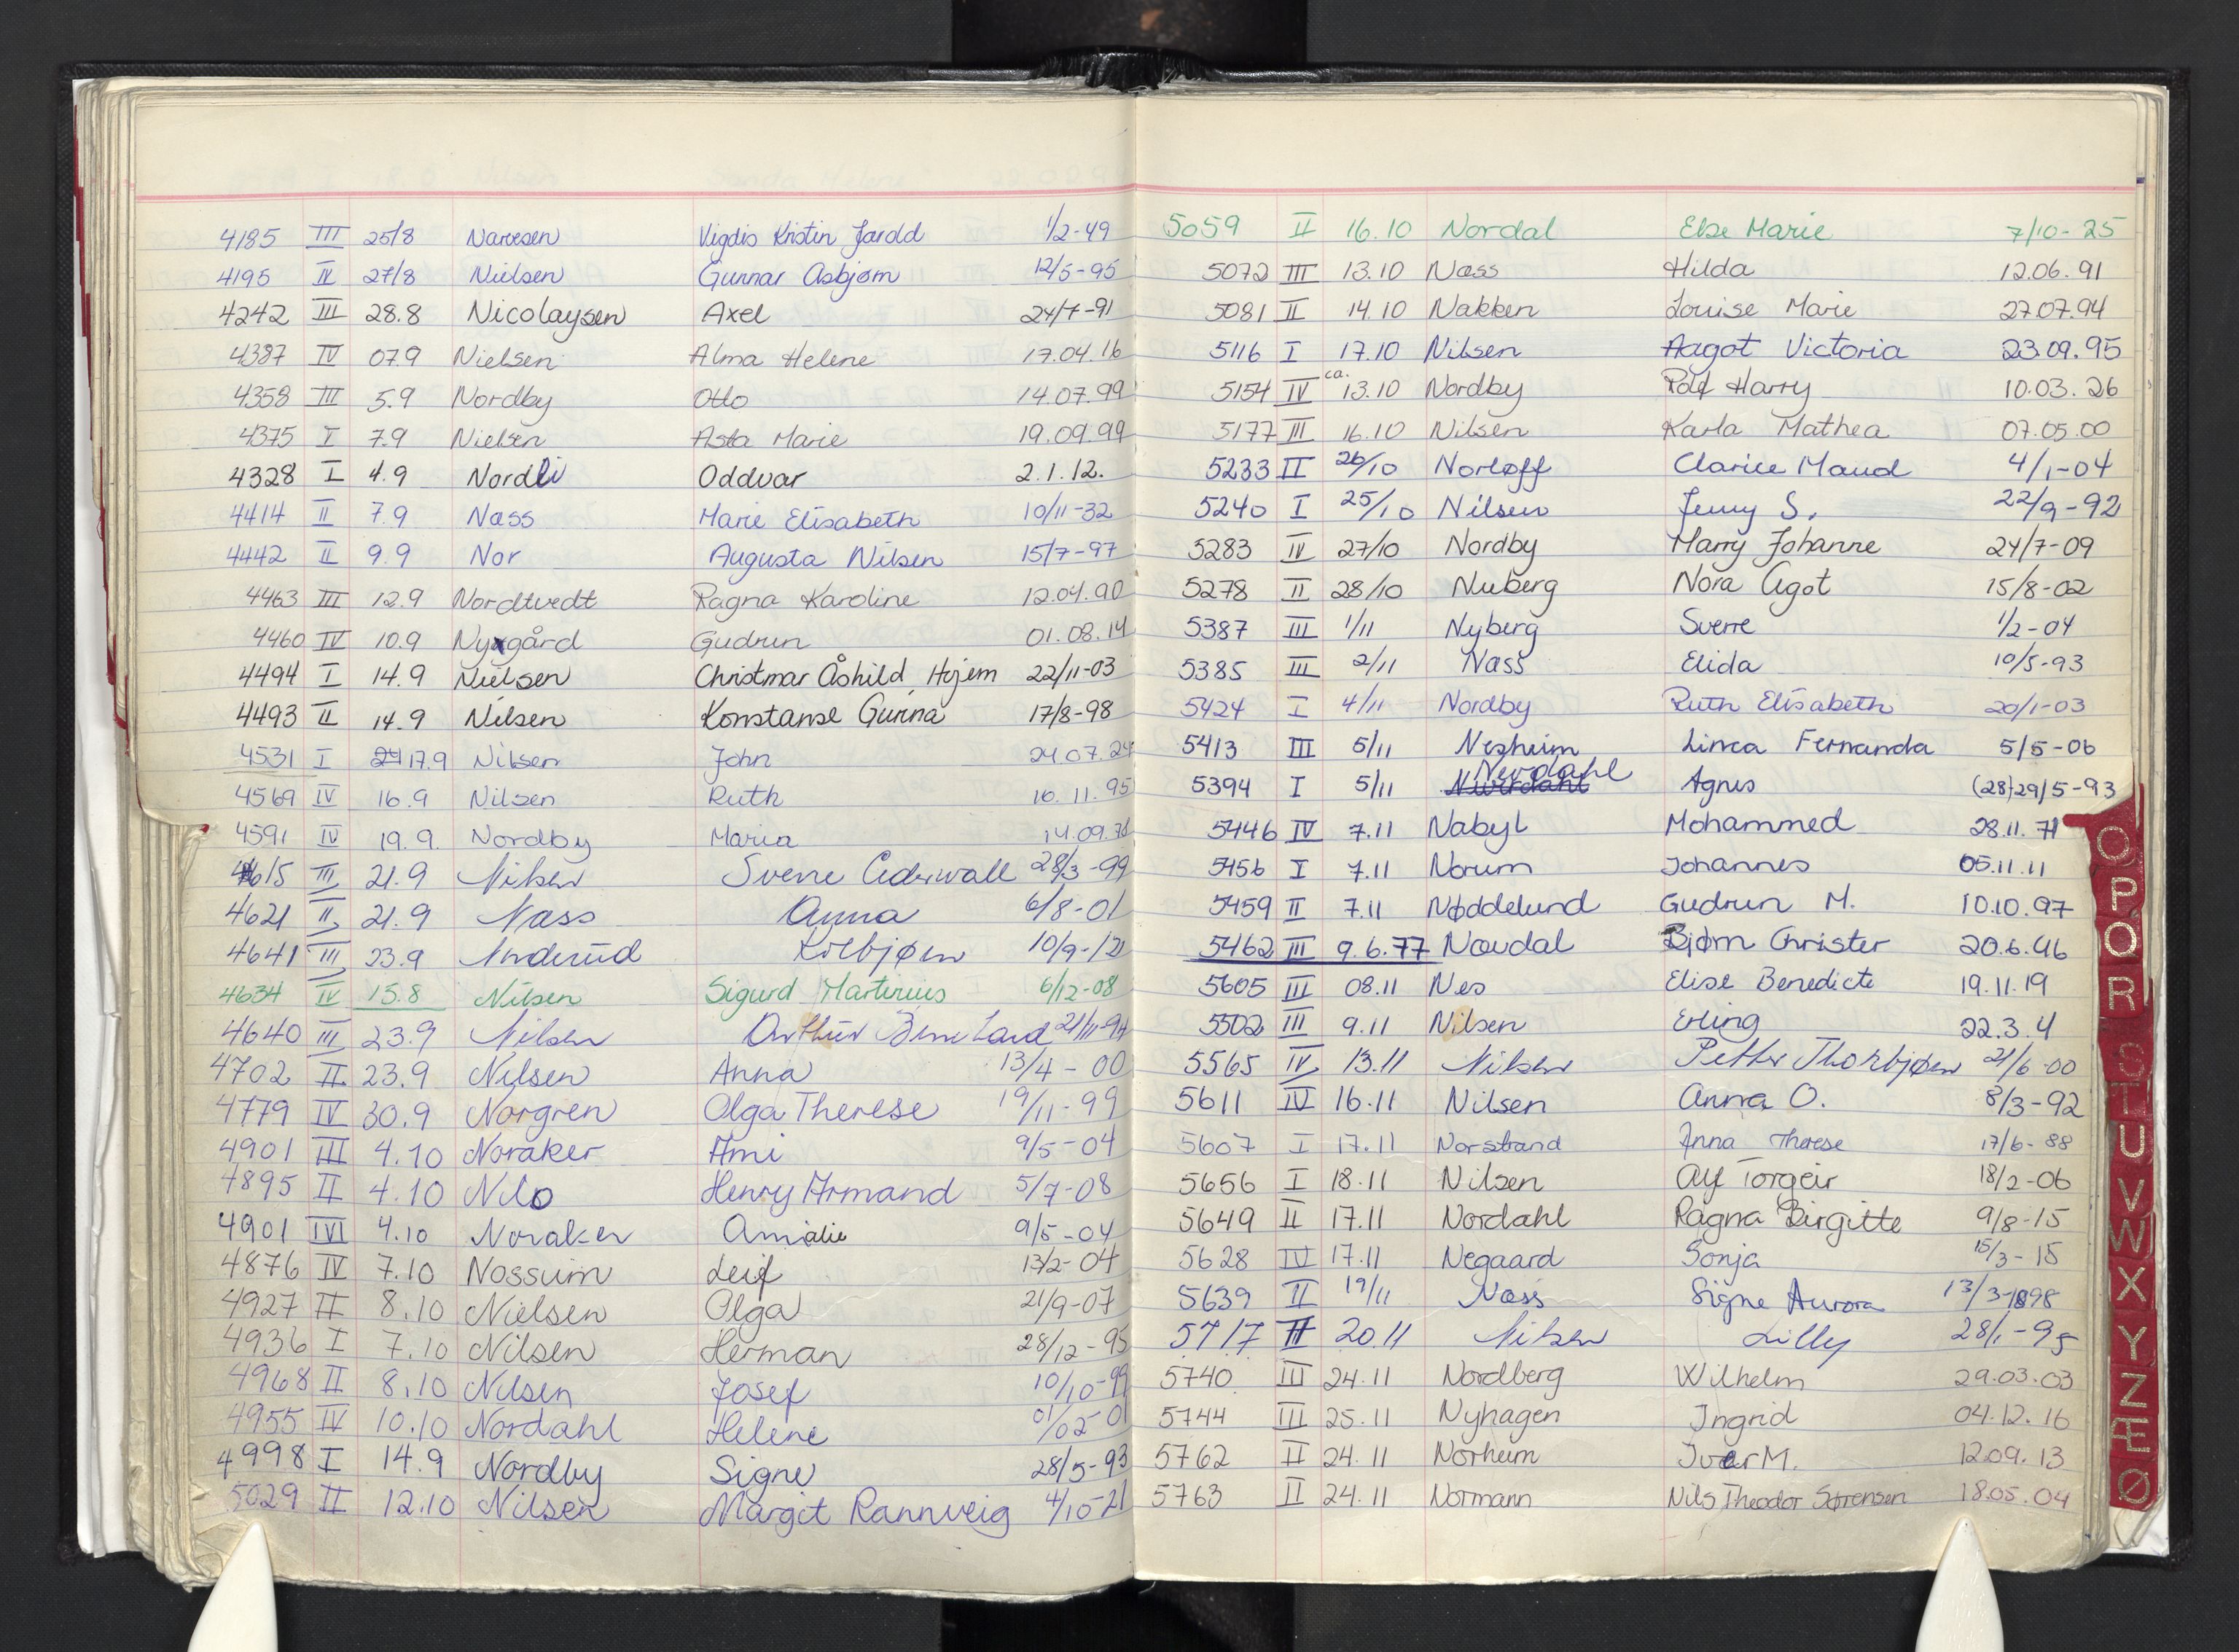 4185 III 25/8 Narvesen Vigdis Kristin Jarold 1/2-49
4195 IV 27/8 Nielsen Gunnar Asbjørn 12/5-95
4242 III 28.8 Nicolaysen Axel 24/7-91
4387 IV 07.9 Nielsen Alma Helene 17.04.16
4358 III 5.9 Nordby Otto 14.07.99
4375 I 7.9 Nielsen Asta Marie 19.09.99
4328 I 4.9 Nordli Oddvar 2.1.12.
4414 II 7.9 Næss Marie Elisabeth 10/11-32
4442 II 9.9 Nor Augusta Nilsen 15/7-97
4463 III 12.9 Nordtvedt Ragna Karoline 12.04.90
4460 IV 10.9 Nygård Gudrun 01.08.14
4494 I 14.9 Nielsen Christmar Åshild Hojem 22/11-03
4493 II 14.9 Nilsen Konstanse Gunna 17/8-98
4531 I 17.9 Nilsen John 24.07.24
4569 IV 16.9 Nilsen Ruth 16.11.95
4591 IV 19.9. Nordby Maria 14.09.
4615 III 21.9 Nilsen Svene Cederwall 28/3-99
4621 II 21.9 Næss Anna 6/8-01
4641 III 23.9 Kolbjørn 10/9-12
4634 IV 15.8 Nilsen Sigurd Martinius 6/12-08
4640 III 23.9 Nilsen Arthur 21/11-94
4702 II 23.9 Nilsen Anna 13/4-00
4779 IV 30.9 Norgren Olga Therese 19/11-99
4901 III 4.10 Noraker Ami 9/5-04
4895 II 4.10 Nilo Henry Armand 5/7-08
4901 IVI 4.10 Noraker Amalie 9/5-04
4876 IV 7.10 Nossum Leif 13/2-04
4927 II 8.10 Nielsen Olga 21/9-07
4936 I 7.10 Nilsen Herman 28/12-95
4968 II 8.10 Nilsen Josef 10/10-99
4955 IV 10.10 Nordahl Helene 01/02-01
4998 I 14.9 Nordby Signe 28/5-93
5029 II 12.10 Nilsen Margit Rannveig 4/10-21
5059 II 16.10 Nordal Else Marie 7/10-25
5072 III 13.10 Næss Hilda 12.06.91
5081 II 14.10 Nakken Louise Marie 27.07.94
5116 I 17.10 Nilsen Aagot Victoria 23.09.95
5154 IV ca. 13.10 Nordby Rolf Harry 10.03.26
5177 III 16.10 Nilsen Karla Mathea 07.05.00
5233 II 26/10 Norløff Clarice Maud 4/1-04
5240 I 25/10 Nilsen Jenny S. 22/9-92
5283 IV 27/10 Nordby Marry Johanne 24/7-09
5278 II 28/10 Nuberg Nora Agot 15/8-02
5387 III 1/11 Nyberg Sverre 1/2-04
5385 III 2/11 Næss Elida 10/5-93
5424 I 4/11 Nordby Ruth Elisabeth 20/1-03
5413 III 5/11 Nesheim Linea Fernanda 5/5-06
5394 I 5/11 Nerdahl Agnes (28)29/5-93
5446 IV 7.11 Nabyl Mohammed 28.11.71
5456 I 7.11 Norum Johannes 05.11.11
5459 II 7.11 Nøddelund Gudrun M. 10.10.97
5462 III 9.6.77 Nærdal Bjørn Christer 20.6.46
5605 III 08.11 Nes Elise Benedicte 19.11.19
5502 III 9.11 Nilsen Erling 22.3.4
5565 IV 13.11 Nilsen Petter Thorbjørn 21/6-00
5611 IV 16.11 Nilsen Anna O. 8/3-92
5607 I 17.11 Norstrand Anna Therese 17/6-88
5656 I 18.11 Nilsen Alf Torgeir 18/2-06
5649 II 17.11 Nordahl Ragna Birgitte 9/8-15
5628 IV 17.11 Negaard Sonja 15/3-15
5639 II 19/11 Næss Signe Aurora 13/3-1898
5717 II 20.11 Nilsen Lilly 28/1-95
5740 III 24.11 Nordberg Wilhelm 29.03.03
5744 III 25.11 Nyhagen Ingrid 04.12.16
5762 II 24.11 Norheim Iver M. 12.09.13
5763 II 24.11 Normann Nils Theodor Sørensen 18.05.04
O
P
Q
R
S
T
U
V
W
X
Y
Z
Æ
Ø